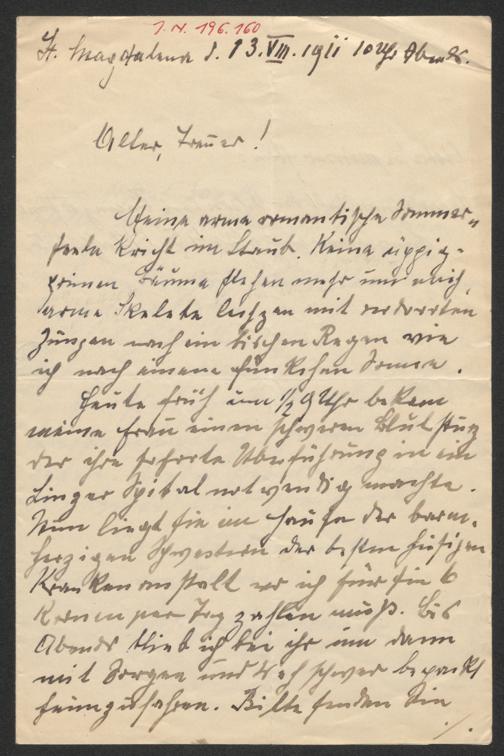 J. N. 196.160
St. Magdalena d. 13. VIII. 1911 10 Uhr Abends.
Alter, Treuer!
Meine arme romantische Sommer-
seele kriecht im Staub. Keine üppig-
grünen Bäume stehen mehr um mich,
arme Skelete lechzen mit verdorrten
Zungen nach ein bischen Regen wie
ich nach einem Fünkchen Sonne.
Heute früh um ½ 9 Uhr bekam
meine Frau einen schweren Blutsturz
der ihre soforte Überführung in ein
Linzer Spital notwendig machte.
Nun liegt sie im Hause der barm-
herzigen Schwestern der besten hiesigen
Krankenanstalt wo ich für sie 6
Kronen per Tag zahlen muß. Bis
Abends blieb ich bei ihr um dann
mit Sorgen und Weh schwer bepackt
heimzufahren. Bitte senden Sie
./.